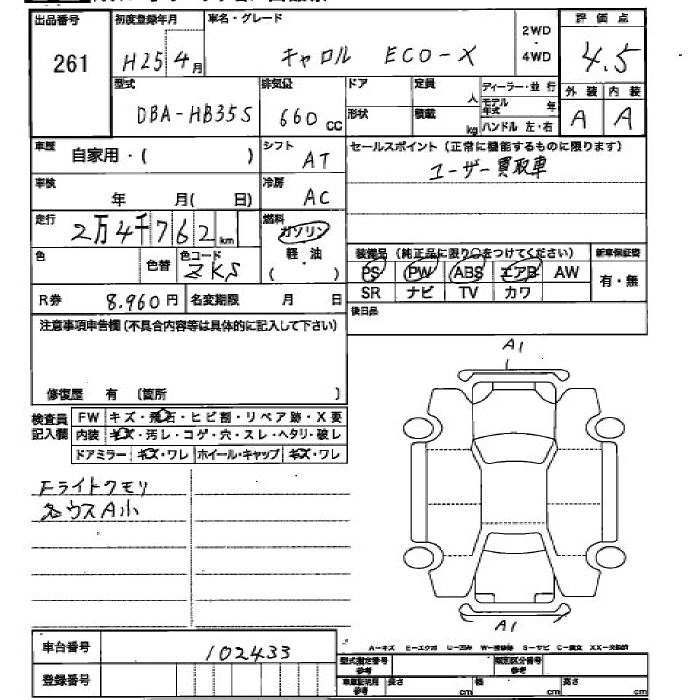 出品番号 初度登録年月 車名・グレード 2WD・4WD 評価点
261 H25 4月 キャロル ECO-X 4.5
型式 排気量 ドア 定員 人 ディーラー・並行 外装 内装
DBA-HB35S 660cc 形状 積載 kg モデル年式 年 A A
ハンドル 左・右
車歴 自家用・( ) シフト AT セールスポイント(正常に機能するものに限ります)
ユーザー買取車
車検 年 月( 日) 冷房 AC
走行 2万4千762km 燃料 ガソリン 軽・油 ( )
装備品(純正品に限り○をつけてください) 新車保証書
色 色替 色コード ZKS PS PW ABS エアB AW 有・無
R券 8.960円 名変期限 月 日 SR ナビ TV カワ
注意事項申告欄(不具合内容等は具体的に記入して下さい) 後日品
A1
修復歴 有 [箇所 ]
検査員記入欄 FW キズ・飛石・ヒビ割・リペア跡・X要
内装 キズ・汚レ・コゲ・穴・スレ・ヘタリ・破レ
ドアミラー キズ・ワレ ホイール・キャップ キズ・ワレ
Fライトクモリ
各ウスA小
A1
A-キズ E-エクボ U-凹み W-補修跡 S-サビ C-腐食 XX-交換済
車台番号 102433
型式指定番号 参考 類別区分番号 参考
登録番号 車庫証明用 参考 長さ cm 幅 cm 高さ cm